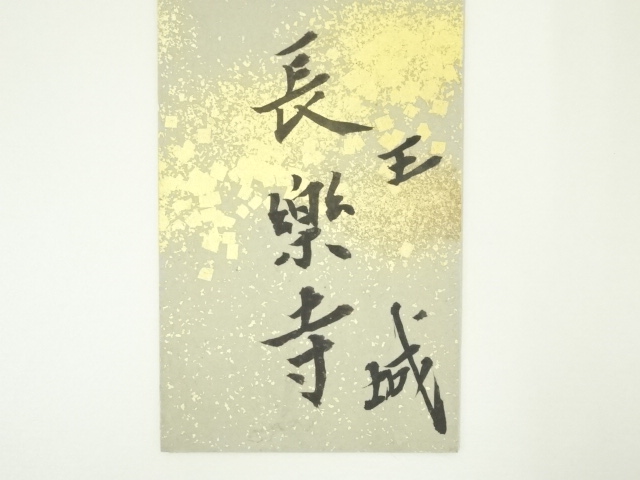 王城
長樂寺